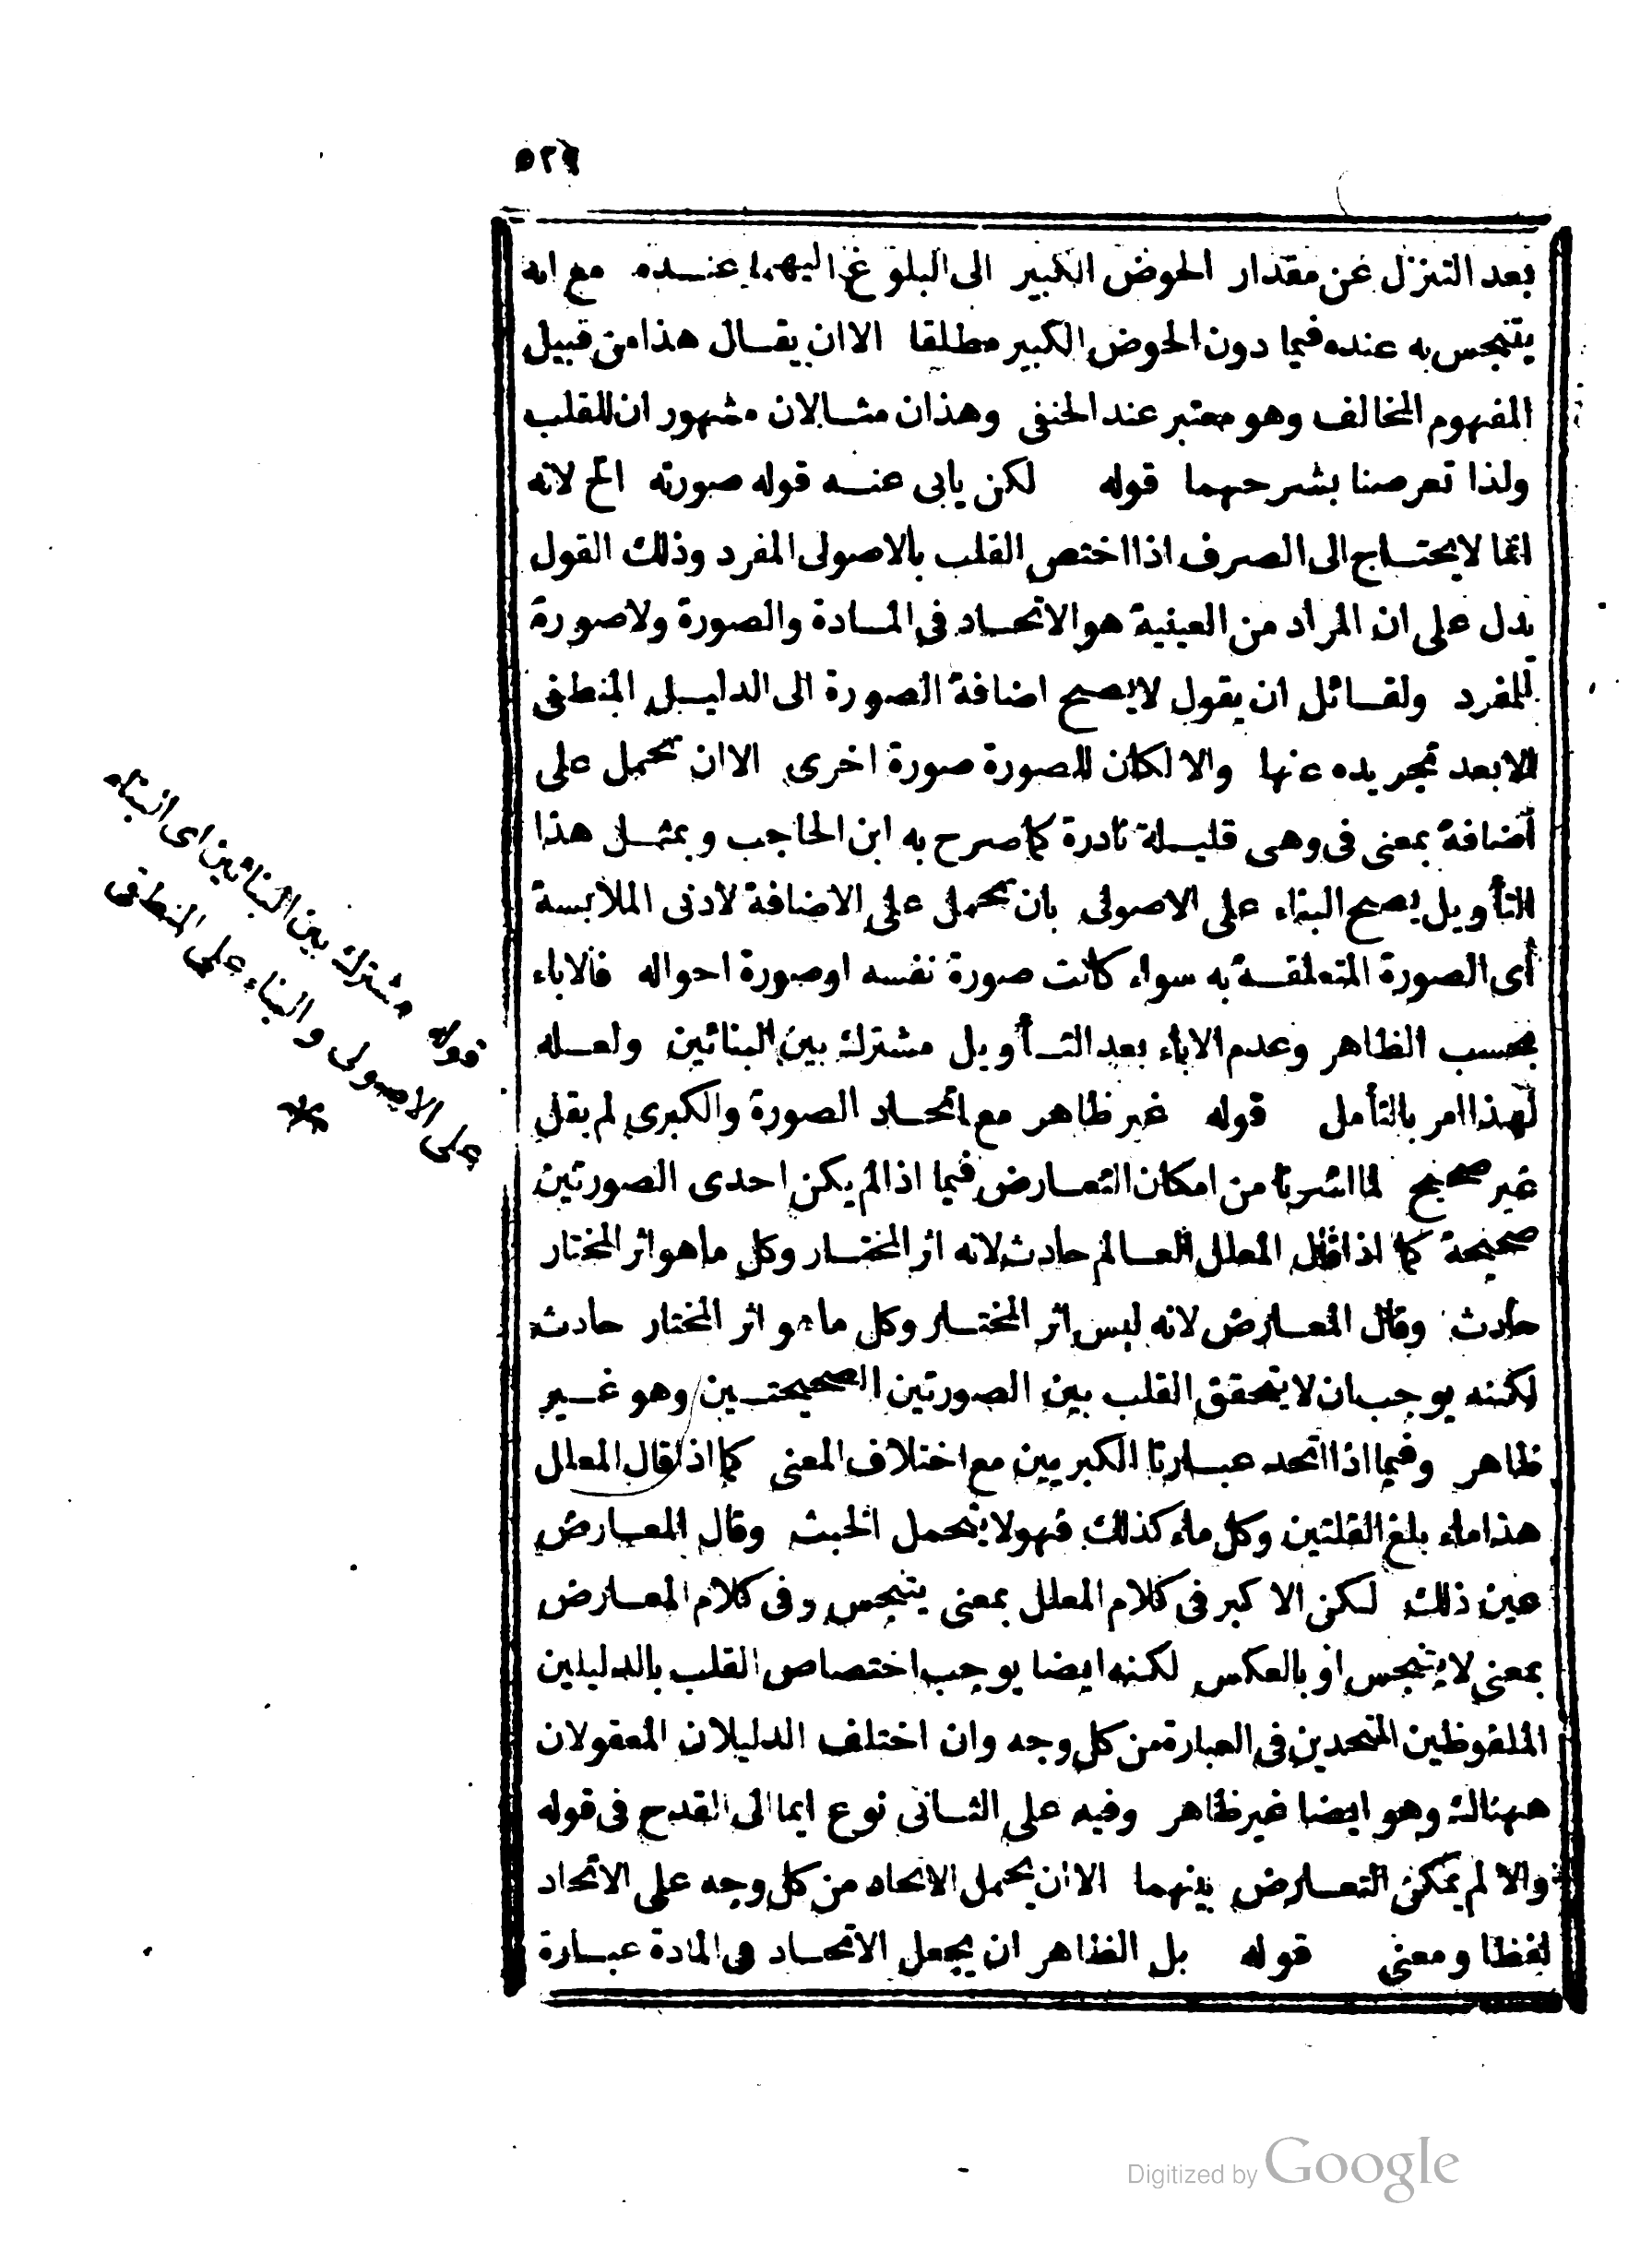 ٥٢٩
بعد التنزل عن مقدار الحوض الكبير الى البلوغ اليهما عنده مع انه
يتنجس به عنده فيما دون الحوض الكبير مطلقا الا ان يقال هذا من قبيل
المفهوم المخالف وهو معتبر عند الحنفى وهذان مثالان مشهوران للقلب
ولذا تعرضنا بشرحهما قوله لكن يابى عنه قوله صورته الخ لانه
انما لا يحتاج الى الصرف اذا اختص القلب بالاصولى المفرد وذلك القول
يدل على ان المراد من العينية هو الاتحاد فى المادة والصورة ولا صورة
للمفرد ولقائل ان يقول لا يصح اضافة الصورة الى الدليل المنطقى
الا بعد تجريده عنها والا لكان للصورة صورة اخرى الا ان تحمل على
اضافة بمعنى فى وهى قليلة نادرة كما صرح به ابن الحاجب وبمثل هذا
التأويل يصح البناء على الاصولى بان تحمل على الاضافة لادنى الملابسة
أى الصورة المتعلقة به سواء كانت صورة نفسه او صورة احواله فالاباء
بحسب الظاهر وعدم الاباء بعد التأويل مشترك بين البنائين ولعله
لهذا امر بالتأمل قوله غير ظاهر مع اتحاد الصورة والكبرى لم يقل
غير صحيح لما اشرنا من امكان التعارض فيما اذا لم يكن احدى الصورتين
صحيحة كما اذا قال المعلل العالم حادث لانه اثر المختار وكل ما هو اثر المختار
حادث وقال المعارض لانه ليس اثر المختار وكل ما هو اثر المختار حادث
لكنه يوجب ان لا يتحقق القلب بين الصورتين الصحيحتين وهو غير
ظاهر وفيما اذا اتحد عبارتا الكبريين مع اختلاف المعنى كما اذا قال المعلل
هذا ماء بلغ القلتين وكل ماء كذلك فهو لا يتحمل الخبث وقال المعارض
عين ذلك لكن الاكبر فى كلام المعلل بمعنى يتنجس وفى كلام المعارض
بمعنى لا يتنجس او بالعكس لكنه ايضا يوجب اختصاص القلب بالدليلين
الملفوظين المتحدين فى العبارة من كل وجه وان اختلف الدليلان المعقولان
ههنالك وهو ايضا غير ظاهر وفيه على الثانى نوع ايما الى القدح فى قوله
والا لم يمكن التعارض بينهما الا ان يحمل الاتحاد من كل وجه على الاتحاد
لفظا ومعنى قوله بل الظاهر ان يجعل الاتحاد فى المادة عبارة
قوله مشترك بين البنائين اى البناء
على الاصولى والبناء على المنطقى
*
Digitized by Google